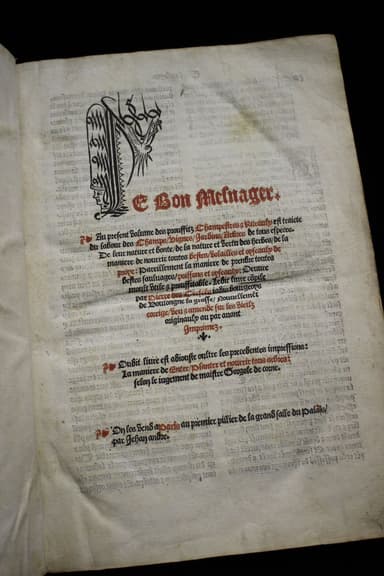 LE Bon Mesnager.
Au present volume des prouffitz Champestres & Ruraulx est traicte
du labour des Champs/Vignes/Jardins/Arbres de tous especes.
De leur nature et bonte/de la nature et vertu des herbes/de la
maniere de nourrir toutes bestes/volailles et oyseaulx de
prix: Pareillement la maniere de prendre toutes
bestes sauluages/poissons et oyseaulx: Oeuure
moult vtile & prouffitable. Ledit liure compile
par Pierre des bourgeoys
de Boulongne la grasse/Nouuellement
corige/veu & amende sur les vielz
originaulx au par auant
Imprimez.
Oudit liure est adiouste oultre les precedentes impressions:
La maniere de Enter/Planter et nourrir tous arbres:
selon le iugement de maistre Gorgole de corne.
On les vend a Paris au premier pillier de la grand salle du Palais/
par Jehan andre.